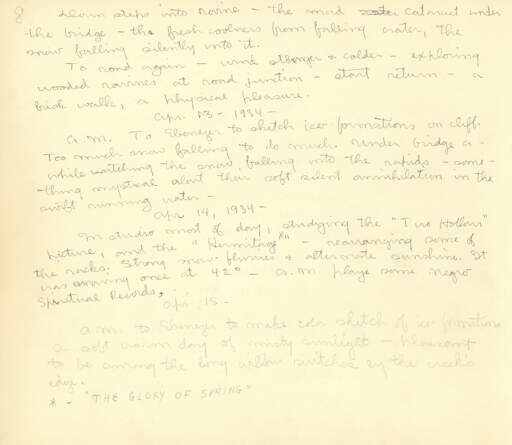 8
Down steps into ravine - the mad water cataract under
the bridge - the fresh coolness from falling water, the
snow falling silently into it.
To road again - wind stronger & colder - exploring
wooded ravines at road junction - start return - a
brisk walk, a physical pleasure.
Apr. 13 - 1934 -
A.M. To Ebenezer to sketch ice formations on cliff.
Too much snow falling to do much. Under bridge a-
while watching the snow falling into the rapids - some-
thing mystical about their soft silent annihilation in the
swift running water -
Apr 14, 1934 -
In studio most of day, studying the "Two Hollows"
picture, and the "Hermitage*" - rearranging some of
the rocks. Strong snow flurries & alternate sunshine. It
was snowing once at 42° - A.M. plays some negro
Spiritual Records,
Apr. 15 -
A.M. to Ebenezer to make color sketch of ice formations
a soft warm day of misty sunlight - pleasant
to be among the long willow switches by the creek's
edge.
* - "THE GLORY OF SPRING"